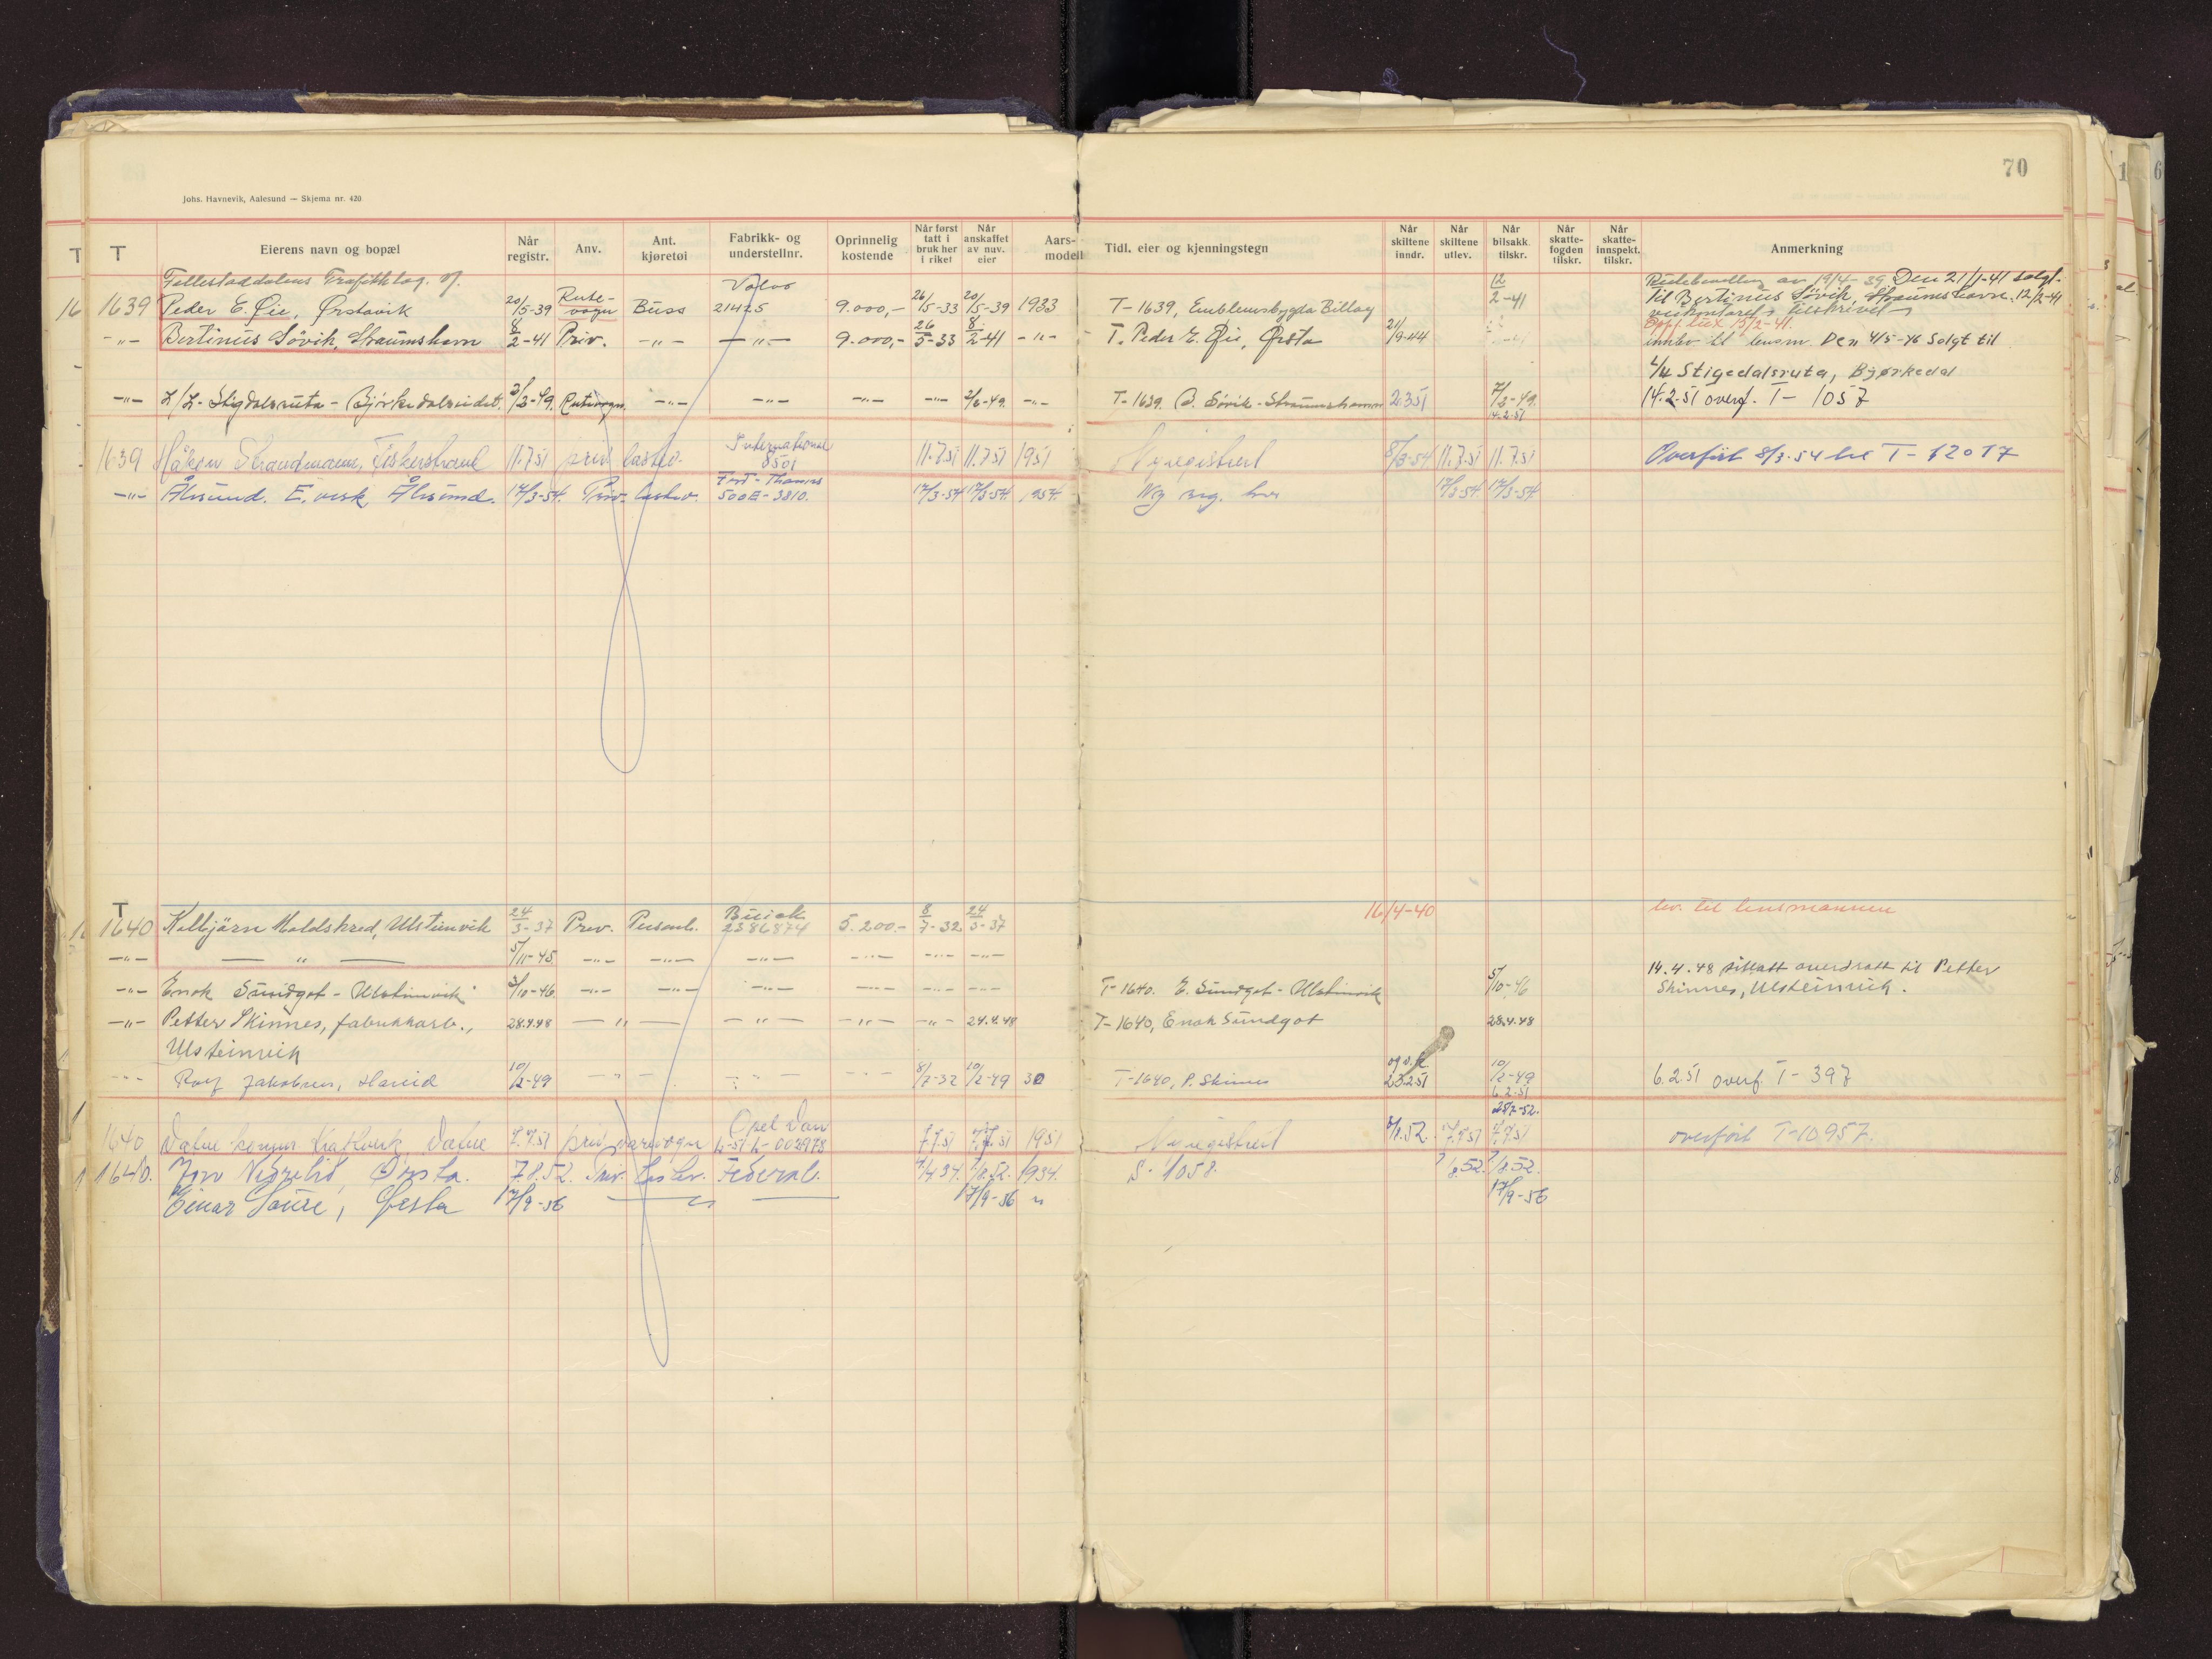 70
Johs. Havnevik, Aalesund — Skjema nr. 420
T Eierens navn og bopæl Når registr. Anv. Ant. kjøretøi Fabrikk- og understellnr. Oprinnelig kostende Når først tatt i bruk her i riket Når anskaffet av nuv. eier Aars-modell Tidl. eier og kjenningstegn Når skiltene inndr. Når skiltene utlev. Når bilsakk. tilskr. Når skatte-fogden tilskr. Når skatte-innspekt. tilskr. Anmerkning
Follestaddalens Trafikklag. v/ Volvo 12 Rutebevilling av 19/4-39 Den 21/1-41 solgt
1639 Peder E. Øie, Ørstavik 20/5-39 Rute-vogn Buss 21425 9.000,- 26/5-33 20/5-39 1933 T-1639, Emblemsbygda Billag 2-41 til Bertinus Søvik, Straumshavn. 12/2-41
veikontoret tilskrevet
-"- Bertinus Søvik, Straumshavn 8/2-41 Priv. -"- -"- 9.000,- 26/5-33 8/2-41 -"- T. Peder E. Øie, Ørsta 21/9-44 15/2-41.
innlev til lensm. Den 4/5-46 Solgt til
L/L Stigedalsruta, Bjørkedal
-"- L/L-Stigdalsruta - Bjørkedalseidet. 2/3-49. Rutevogn -"- -"- -"- -"- 2/6-49. -"- T-1639. B. Søvik - Straumshamn 2.3.51 7/3-49. 14.2.51 14.2.51 overf. T-1057
1639 Håkon Strandmann, Fiskerstrand 11.7.51 priv. lastev. International 8501 11.7.51 11.7.51 1951 Nyregistrert 8/3-54 11.7.51 11.7.51 Overført 8/3-54 til T-12017
-"- Ålesund. E. verk, Ålesund. 17/3-54. Priv. lastev. Ford-Thames 500E-3810. 17/3-54 17/3-54. 1954. Ny reg. her 17/3.54 17/3-54.
T
1640 Kolbjørn Moldskred, Ulsteinvik 24/3-37 Priv. Personb. Buick 2386874 5.200.- 8/7-32 24/3-37 16/4-40 lev. til lensmannen
-"- -"- 5/11-45 -"- -"- -"- -"- -"- -"-
-"- Enok Sundgot - Ulsteinvik 3/10-46 -"- -"- -"- -"- -"- -"- T-1640. E. Sundgot - Ulsteinvik 5/10-46 14.4.48 tillatt overdratt til Petter Skinnes, Ulsteinvik.
-"- Petter Skinnes, fabrikkarb., 28.4.48 -"- -"- -"- -"- 24.4.48 T-1640, Enok Sundgot 28.4.48
Ulsteinvik
-"- Rolf Jakobsen, Hareid 10/2-49 -"- -"- -"- 8/7-32 10/2-49 32 T-1640, P. Skinnes 23.2.51 10/2-49 6.2.51 6.2.51 overf. T-397
28/7-52.
1640 Vatne komm. kraftverk, Vatne 7.7.51 priv varevogn Opel Van L-51 L-003978 7.7.51 7.7.51 1951 Nyregistrert 8/1.52. 7.7.51 7.7.51 overført T-10957.
1640. Jon Nedrelid, Ørsta. 7.8.52. Priv. Lastev. Federal. 7/4.34. 7/8.52. 1934. S-1058. 7/8.52. 7/8.52.
Einar Saure, Ørsta 17/9-56 -"- 17/9-56 " 17/9-56